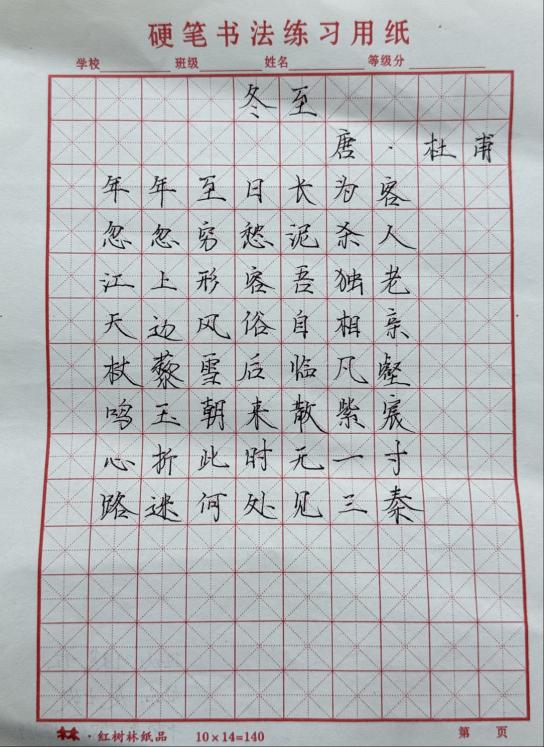 硬笔书法练习用纸
学校 班级 姓名 等级分
冬至
唐·杜甫
年年至日长为客
忽忽穷愁泥杀人
江上形容吾独老
天边风俗自相亲
杖藜雪后临凡壑
鸣玉朝来散紫宸
心折此时无一寸
路迷何处见三秦
林·红树林纸品 10×14=140 第 页